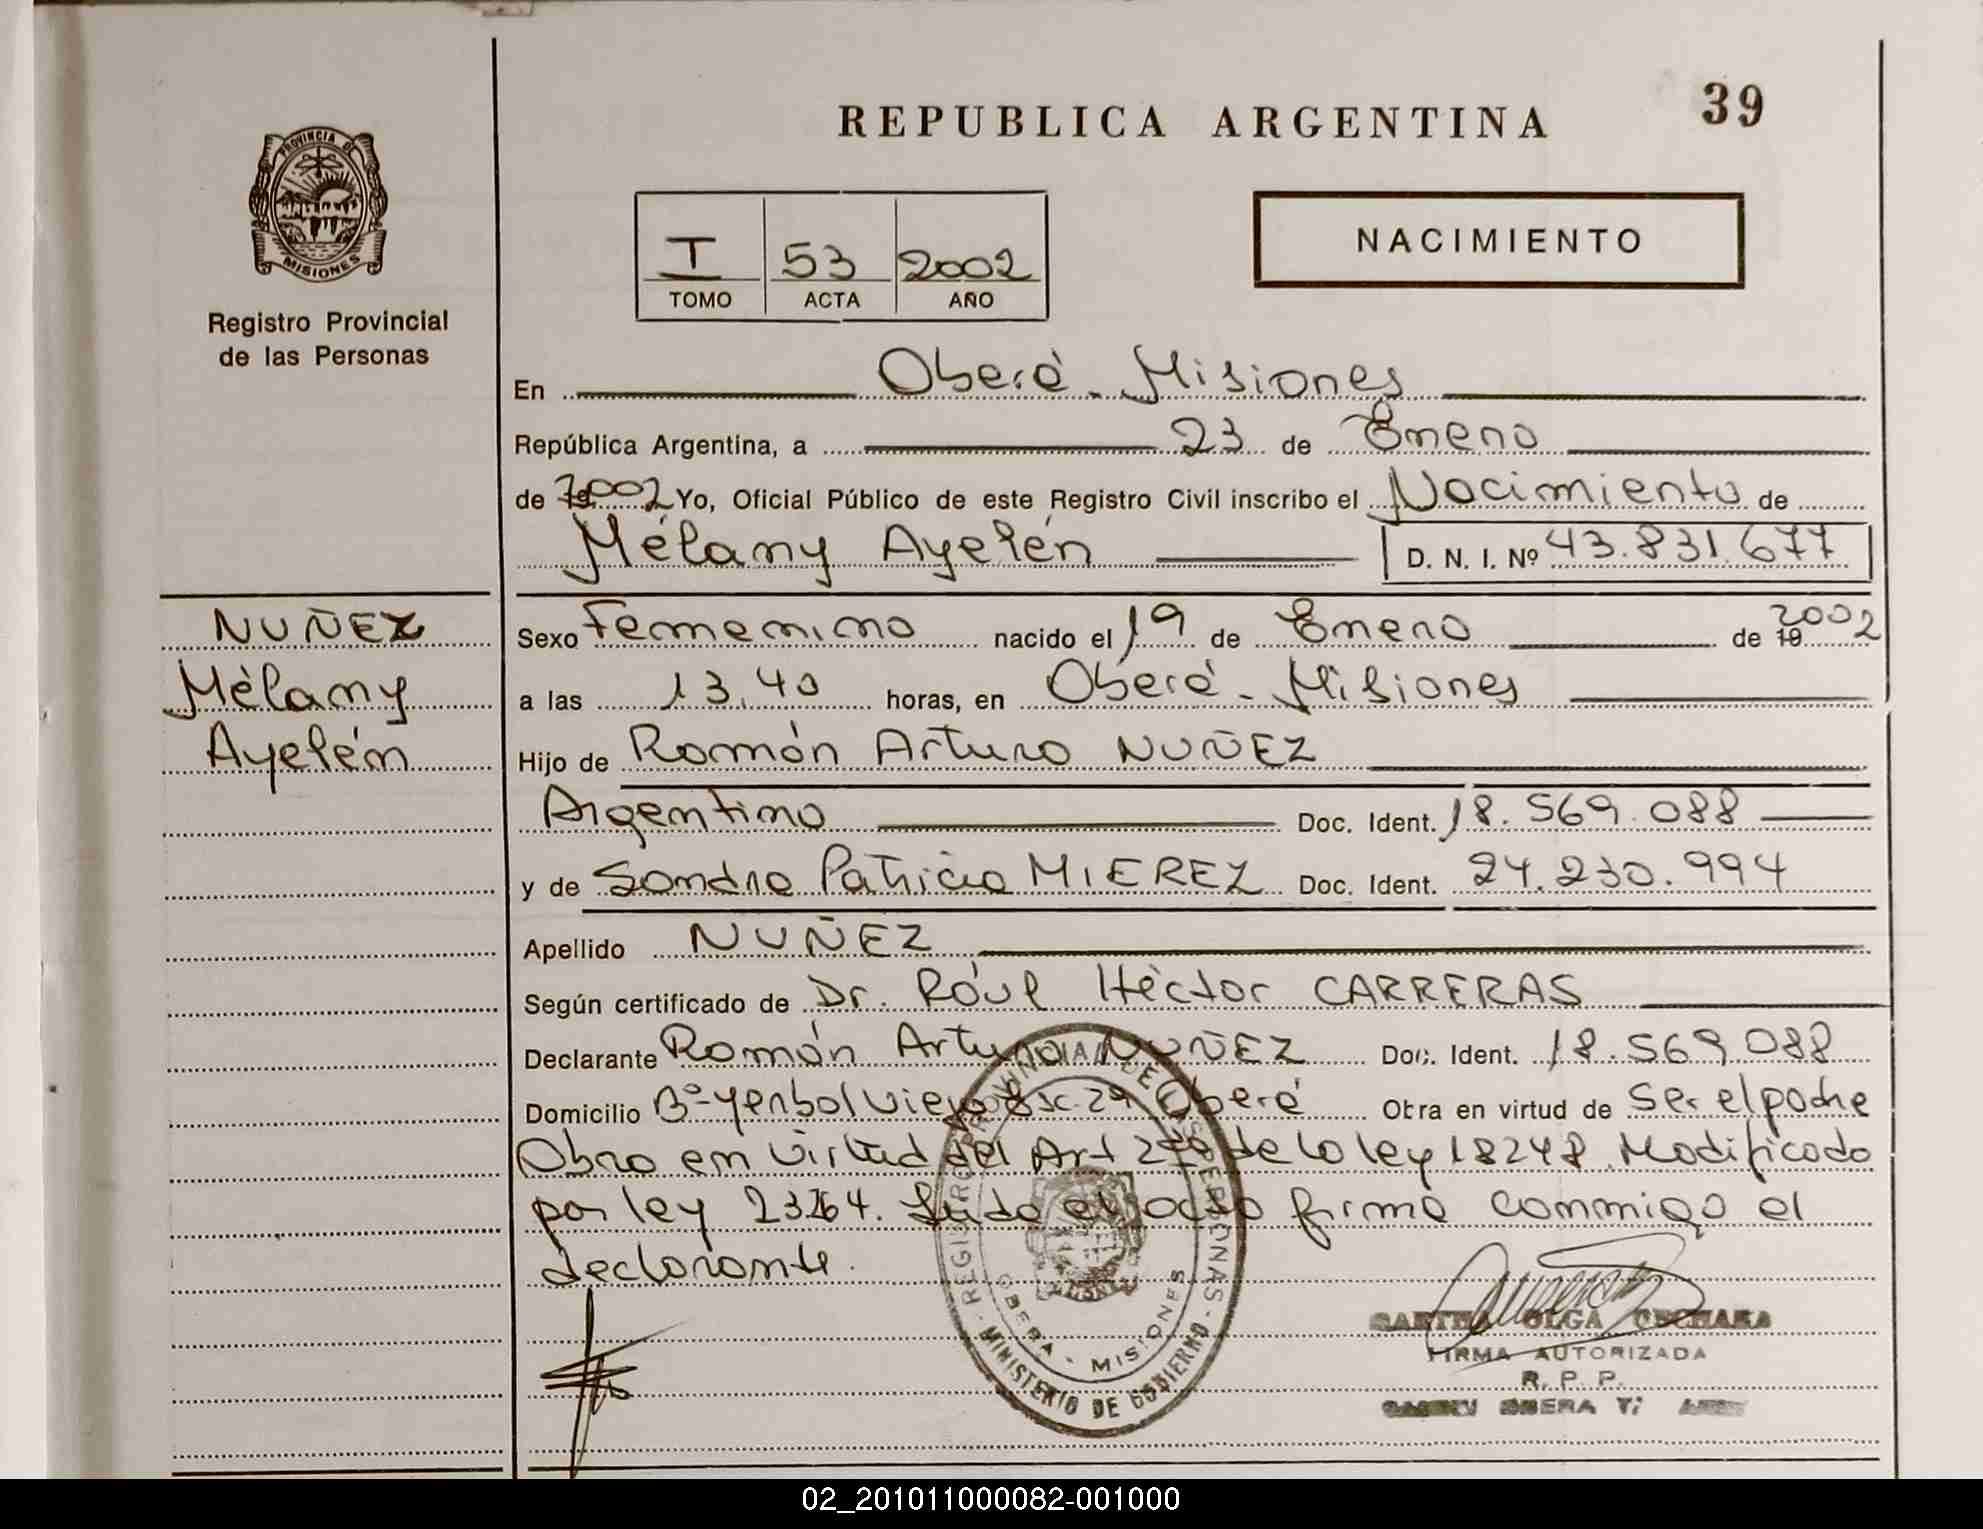 39
REPUBLICA ARGENTINA
PROVINCIA DE
MISIONES
Registro Provincial
de las Personas
NACIMIENTO
I 53 2002
TOMO ACTA AÑO
En Oberá - Misiones
República Argentina, a 23 de Enero
de 2002 Yo, Oficial Público de este Registro Civil inscribo el Nacimiento de
Mélany Ayelén D. N. I. Nº 43.831.677
NUÑEZ
Mélany
Ayelén
Sexo Femenino nacido el 19 de Enero de 19 2002
a las 13,40 horas, en Oberá - Misiones
Hijo de Román Arturo NUÑEZ
Argentino Doc. Ident. 18.569.088
y de Sandra Patricia MIEREZ Doc. Ident. 24.230.994
Apellido NUÑEZ
Según certificado de Dr. Rául Héctor CARRERAS
Declarante Román Arturo NUÑEZ Doc. Ident. 18.569.088
Domicilio Bº Yerbal Viejo Oberá Obra en virtud de ser el padre
Obra en virtud del Art de la ley 18248. Modificado
por ley 23264. Leida el acta firma conmigo el
declarante.
REGISTRO PROVINCIAL DE LAS PERSONAS
OBERA - MISIONES
MINISTERIO DE GOBIERNO
OLGA
FIRMA AUTORIZADA
R. P. P.
OBERA
02_201011000082-001000